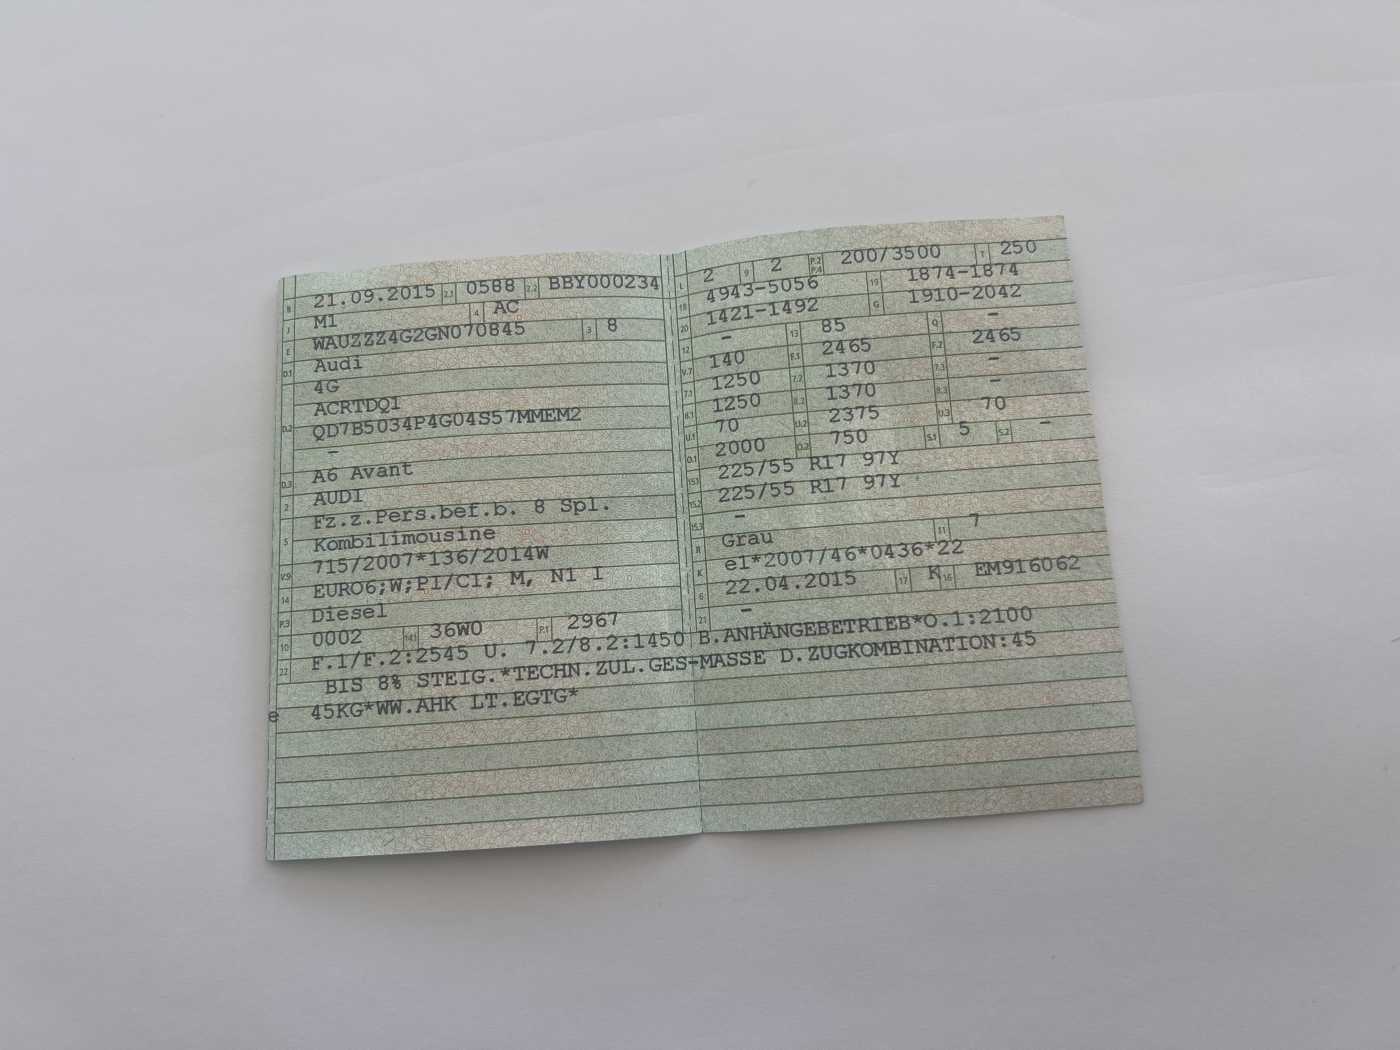 B 21.09.2015 2.1 0588 2.2 BBY000234
J M1 4 AC
E WAUZZZ4G2GN070845 3 8
D.1 Audi
4G
D.2 ACRTDQ1
QD7B5034P4G04S57MMEM2
-
D.3 A6 Avant
2 AUDI
5 Fz.z.Pers.bef.b. 8 Spl.
Kombilimousine
V.9 715/2007*136/2014W
14 EURO6;W;PI/CI; M, N1 I
P.3 Diesel
10 0002 14.1 36W0 P.1 2967
L 2 9 2 P.2 P.4 200/3500 T 250
18 4943-5056 19 1874-1874
20 1421-1492 G 1910-2042
12 - 13 85 Q -
V.7 140 F.1 2465 F.2 2465
7.1 1250 7.2 1370 7.3 -
8.1 1250 8.2 1370 8.3 -
U.1 70 U.2 2375 U.3 70
O.1 2000 O.2 750 S.1 5 S.2 -
15.1 225/55 R17 97Y
15.2 225/55 R17 97Y
15.3 -
R Grau 11 7
K e1*2007/46*0436*22
6 22.04.2015 17 K 16 EM916062
21 -
22 F.1/F.2:2545 U. 7.2/8.2:1450 B.ANHÄNGEBETRIEB*O.1:2100
BIS 8% STEIG.*TECHN.ZUL.GES-MASSE D.ZUGKOMBINATION:45
e 45KG*WW.AHK LT.EGTG*